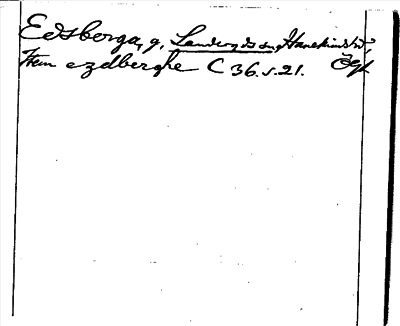 Edsberga, g, Landeryds sn, Hanekinds hd,
Item ezdberghe C 36. s. 21. Ögl